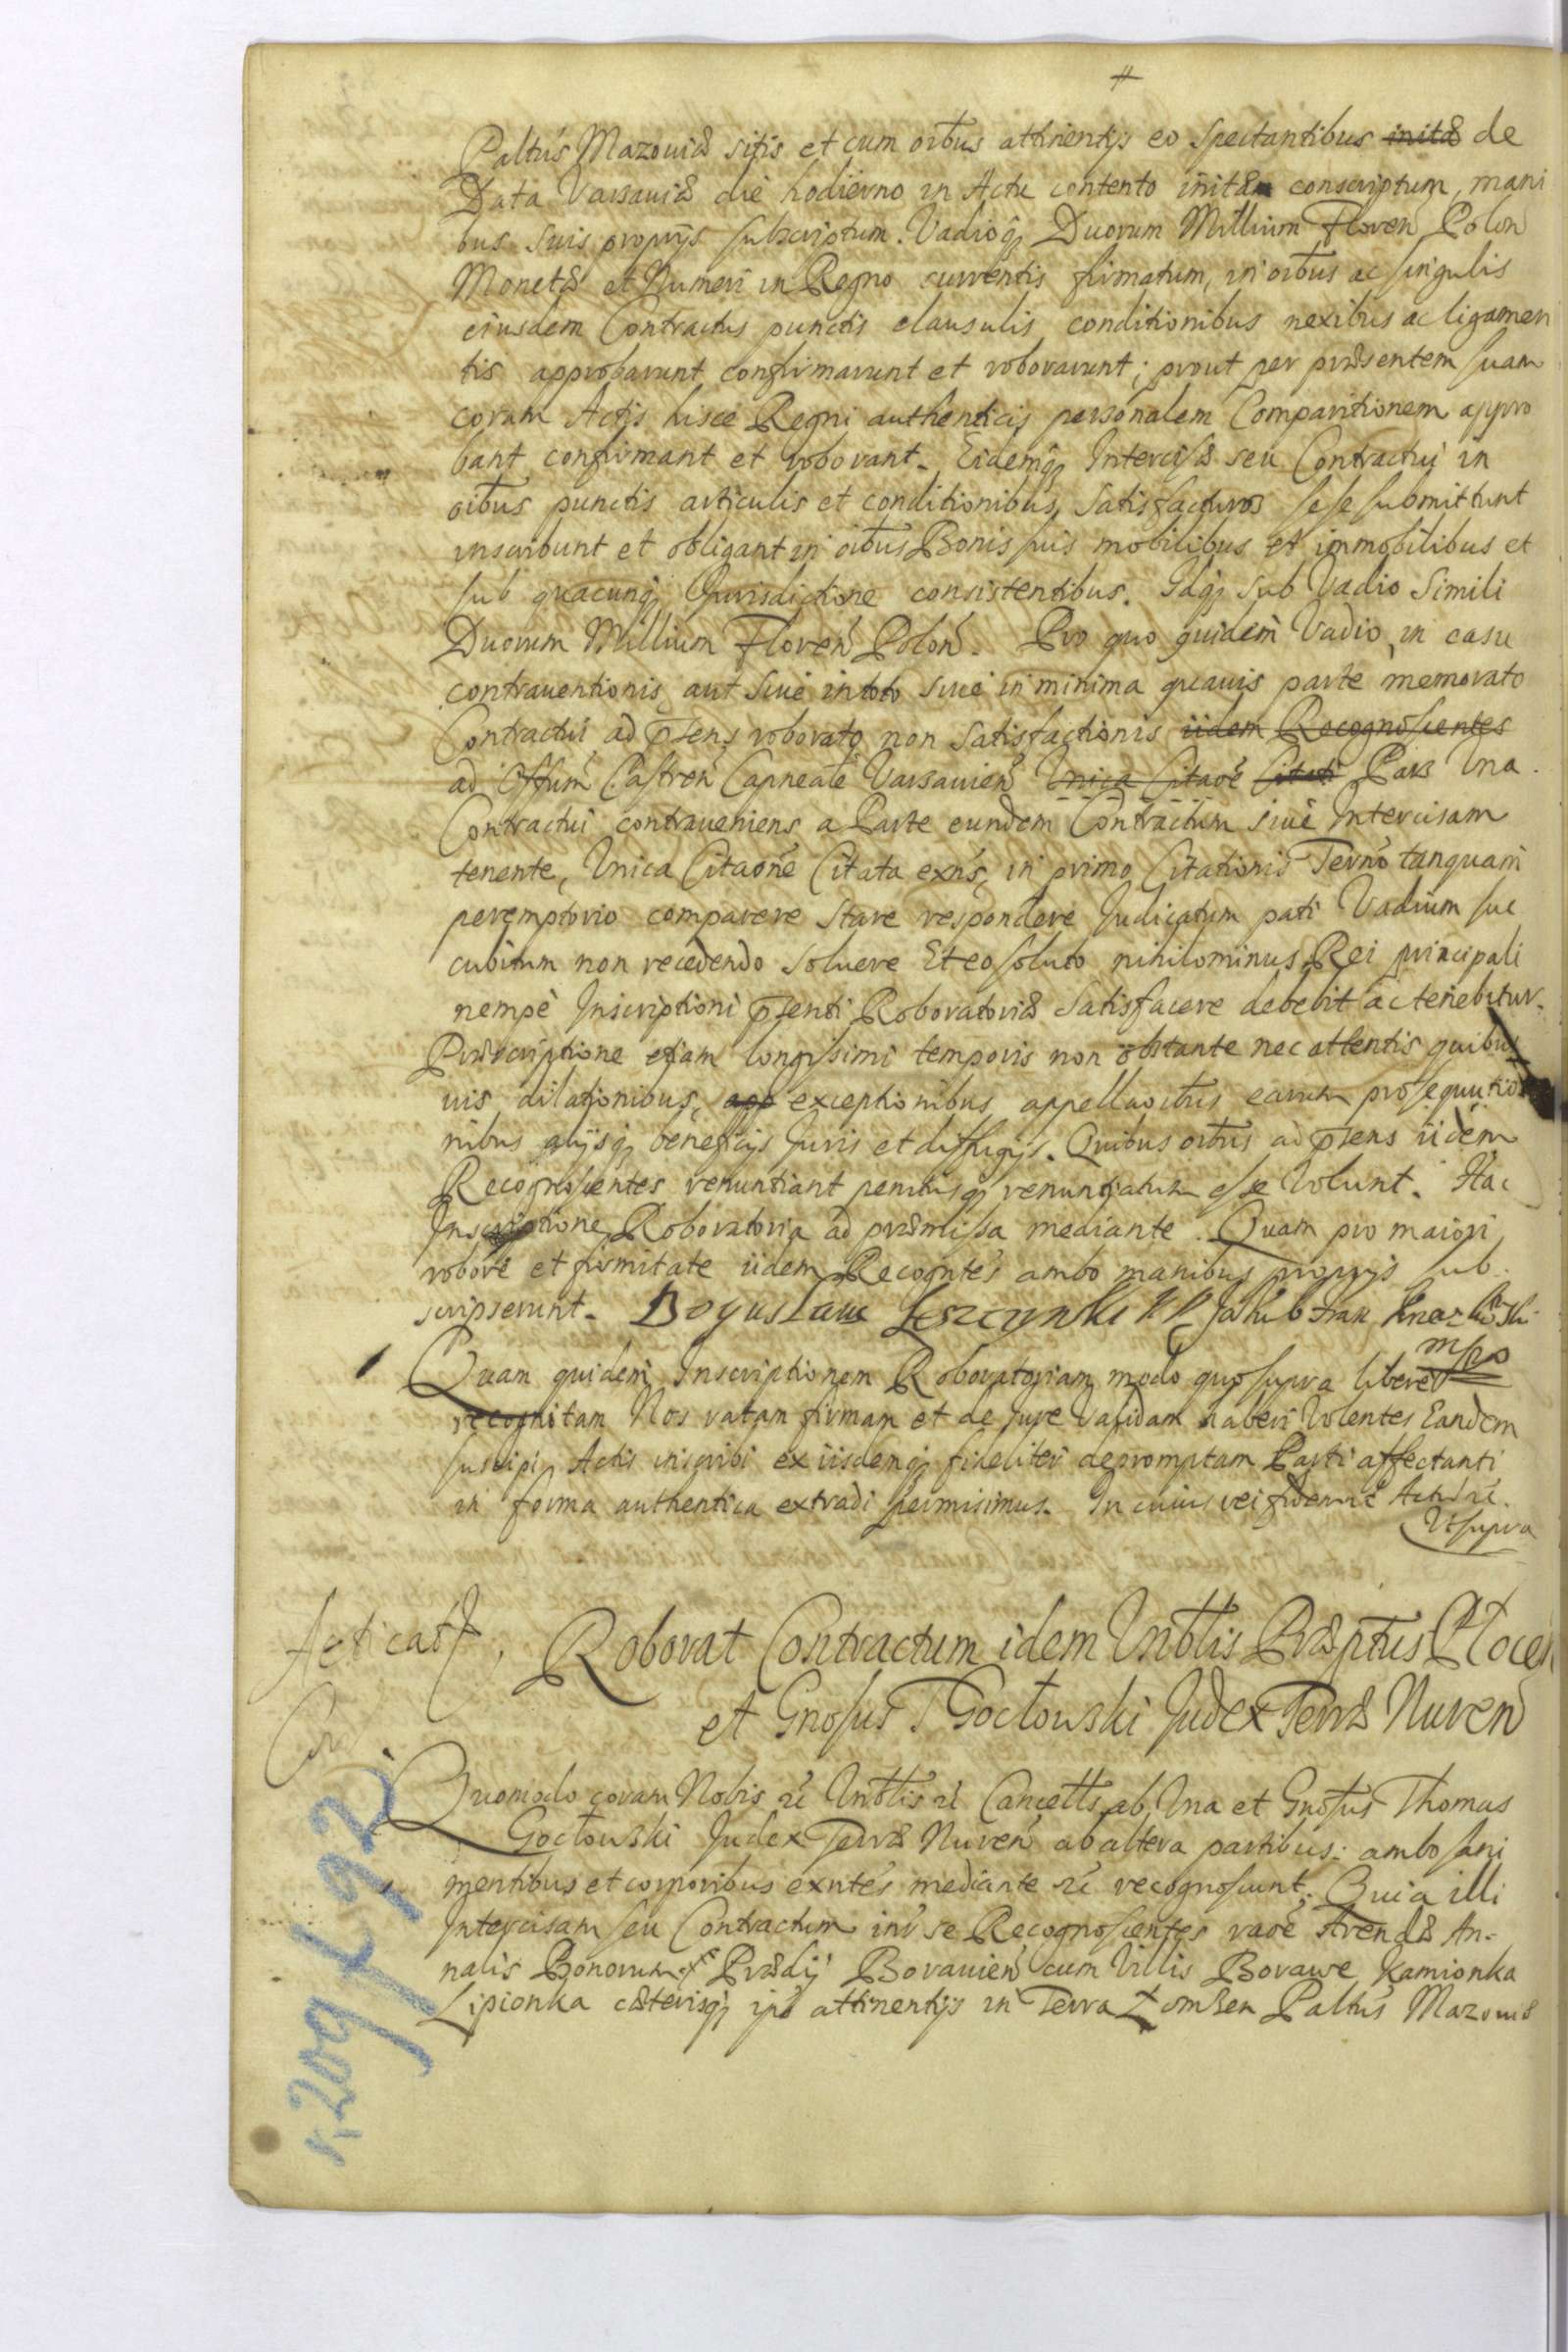 #
Paltus Mazouiæ sitis et cum oībus attinentÿs eo spectantibus initæ de
Data Varsauiæ die hodierno in Actu contento initæ conscriptum, mani
bus suis proprÿs subscriptum. Vadioq3 Duorum Millium Floren Polon
Monetæ et Numeri in Regno currentis firmatum, in oībus ac singulis
eiusdem Contractus punctis clausulis conditionibus nexibus ac ligamen
tis approbarunt confirmarunt et roborarunt; prout per præsentem suam
coram Actis hisce Regni authenticis personalem Comparitionem appro
bant confirmant et roborant. Eidemq3 Intercisæ seu Contractui in
oībus punctis articulis et conditionibus, satisfacturos sese submittunt
inscribunt et obligant in oībus Bonis suis mobilibus et immobilibus et
sub quacunq3 Jurisdictione consistentibus. Idq3 sub Vadio Simili
Duorum Millium Floren Polon. Pro quo quidem Vadio, in casu
contrauentionis aut siue in toto siue in minima quauis parte memorato
Contractui ad p̄sens roborato non satisfactionis iidem Recognoscentes
ad Offūm Castren Capneale Varsauien Unica Citaōe Citati Pars Una
Contractui contraueniens a Parte eundem Contractum siue Intercisam
tenente, Unica Citaōne Citata exn̄s, in primo Citationis Terno tanquam
peremptorio comparere stare respondere Judicatum pati Vadium suc
cubitum non recedendo soluere Et eo soluto nihilominus Rei principali
nempè Inscriptioni p̄senti Roboratoriæ satisfacere debebit ac tenebitur.
Præscriptione etiam longissimi temporis non obstante nec attentis quibus
uis dilationibus, app exceptionibus appellaōibus earum prosequutio
nibus alÿsq3 beneficÿs Juris et diffugÿs. Quibus oībus ad p̄sens iidem
Recognoscentes renuntiant penitusq3 renuntiatum esse Volunt. Hac
Inscriptione Roboratoria ad præmissa mediante. Quam pro maiori
robore et firmitate iidem Recogntes ambo manibus proprÿs sub
scripserunt. Boguslaw Leszczynski Jakub Fran
mpp
Quam quidem Inscriptionem Roboratoriam modo quo supra libere
recognitam Nos ratam firmam et de jure Validam haberi Volentes Eandem
suscipi, Actis inscribi ex iisdemq3 fideliter depromptam Parti affectanti
in forma authentica extradi permisimus. In cuius rei fidem rc Act rc.
Ut supra
Acticat,
Roborat Contractum idem Inbtlis Præptus Plocen
et Gnosus T Goctowski Judex Terræ Nuren
Quomodo coram Nobis rc Inbtlis rc Cancells. ab Una et Gnosus Thomas
Goctowski Judex Terræ Nuren ab altera partibus. ambo sani
mentibus et corporibus exntes mediante rc recognoscunt. Quia illi
Intercisam seu Contractum intr se Recognoscentes raōe Arendæ An-
nalis Bonorum Prædÿ Borauien cum Villis Borawe Kamionka
Lipionka cæterisq3 ips attinentÿs in Terra Łomzen Paltus Mazouiæ
r. 209 f 92